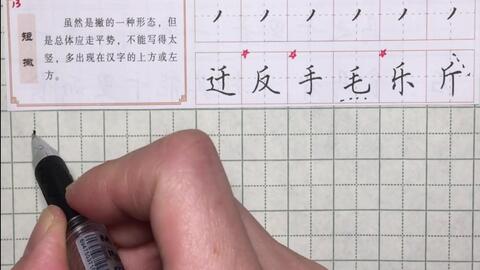 13
短撇
虽然是撇的一种形态，但
是总体应走平势，不能写得太
竖，多出现在汉字的上方或左
方。
迁反手毛乐斤